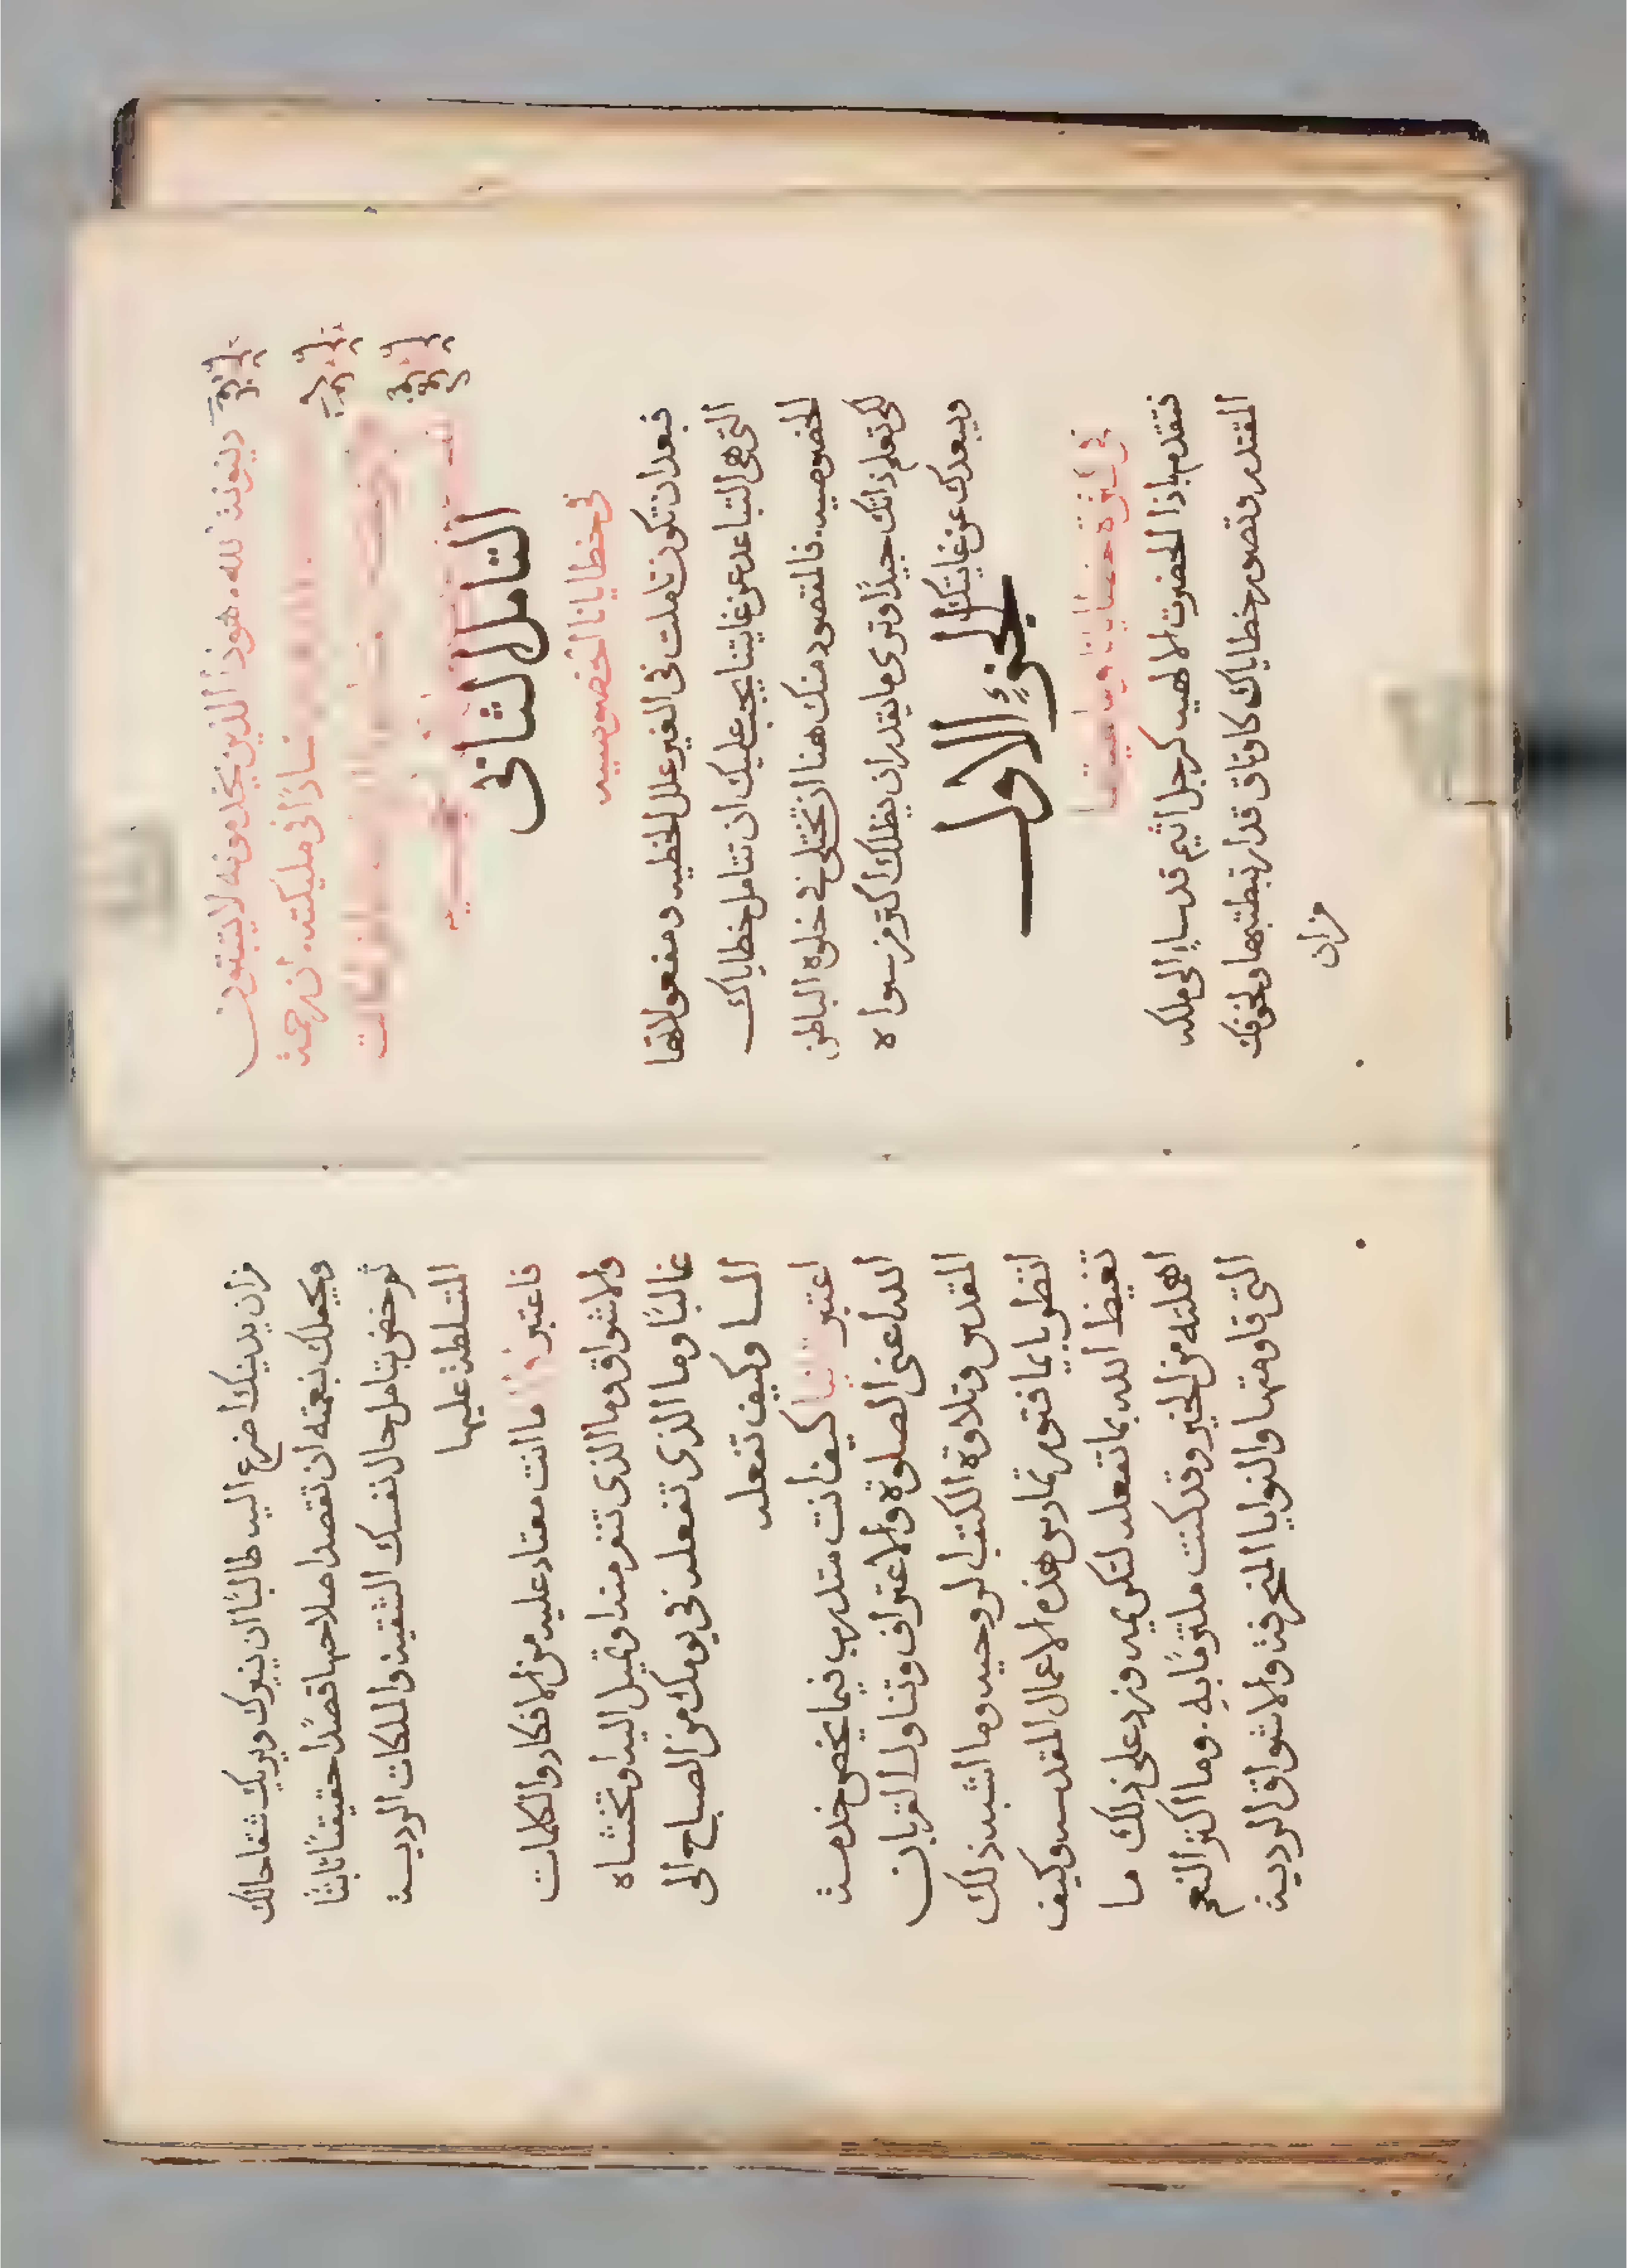 دينونة لله. هوذا الذين يخدمونه لايثبتون
فسادًا في مليكته. ان رحمة
التامل الثاني
في خطايانا الخصوصيه
فبعد ان تكون تاملت في الغير علل الخطيه ومفعولاتها
التي هي التباعد عن غايتنا يجب عليك ان تتامل خطاياك
الخصوصيه. فالمقصود منك هنا ان تختلي في خلوة الباطن
لكي تعلم ذاتك جيدًا وترى ما يقدر ان يظلك اكثر من سواه
ويبعدك عن غايتك
الجزء الاول
في كثرة خطايانا وسماجتها
فتقدم باذا الحضرت الالهيه كرجل اثيم قد ساء الى ملكه
المقتدر وتصور خطاياك كاوثاق قد ارتبطت بها ولخوفك
من ان
من ان يدينك اضرع اليه طالبًا ان ينيرك ويريك شقا حالك
ويجعلك بنعمته ان تقصد اصلاحها قصدًا حقيقيًا ثابتًا
ثم خض بتامل حال نفسك الشقيه والملكات الرديه
المتسلطة عليها
فاعتبر اولًا ما انت معتاد عليه من الافكار والكلمات
والاشواق وما الذي تنفر منه او تميل اليه او تخشاه
غالبًا وما الذي تفعله في يومك من الصباح الى
المسا وكيف تفعله
اعتبر ثانيا كيف انت متدرب فيما يخص خدمة
الله اعني الصلوة والاعتراف وتناول القربان
المقدس وتلاوة الكتب الروحيه وما اشبه ذلك
انظر يا بما فتور تمارس هذه الاعمال المقدسه وكيف
تغيظ الله بما تفعله لتكريمه وزد على ذلك ما
اهملته من الخير وقد كنت ملتزمًا به. وما اكثر النعم
التي قاومتها والنوايا المنحرفة والاشواق الرديه